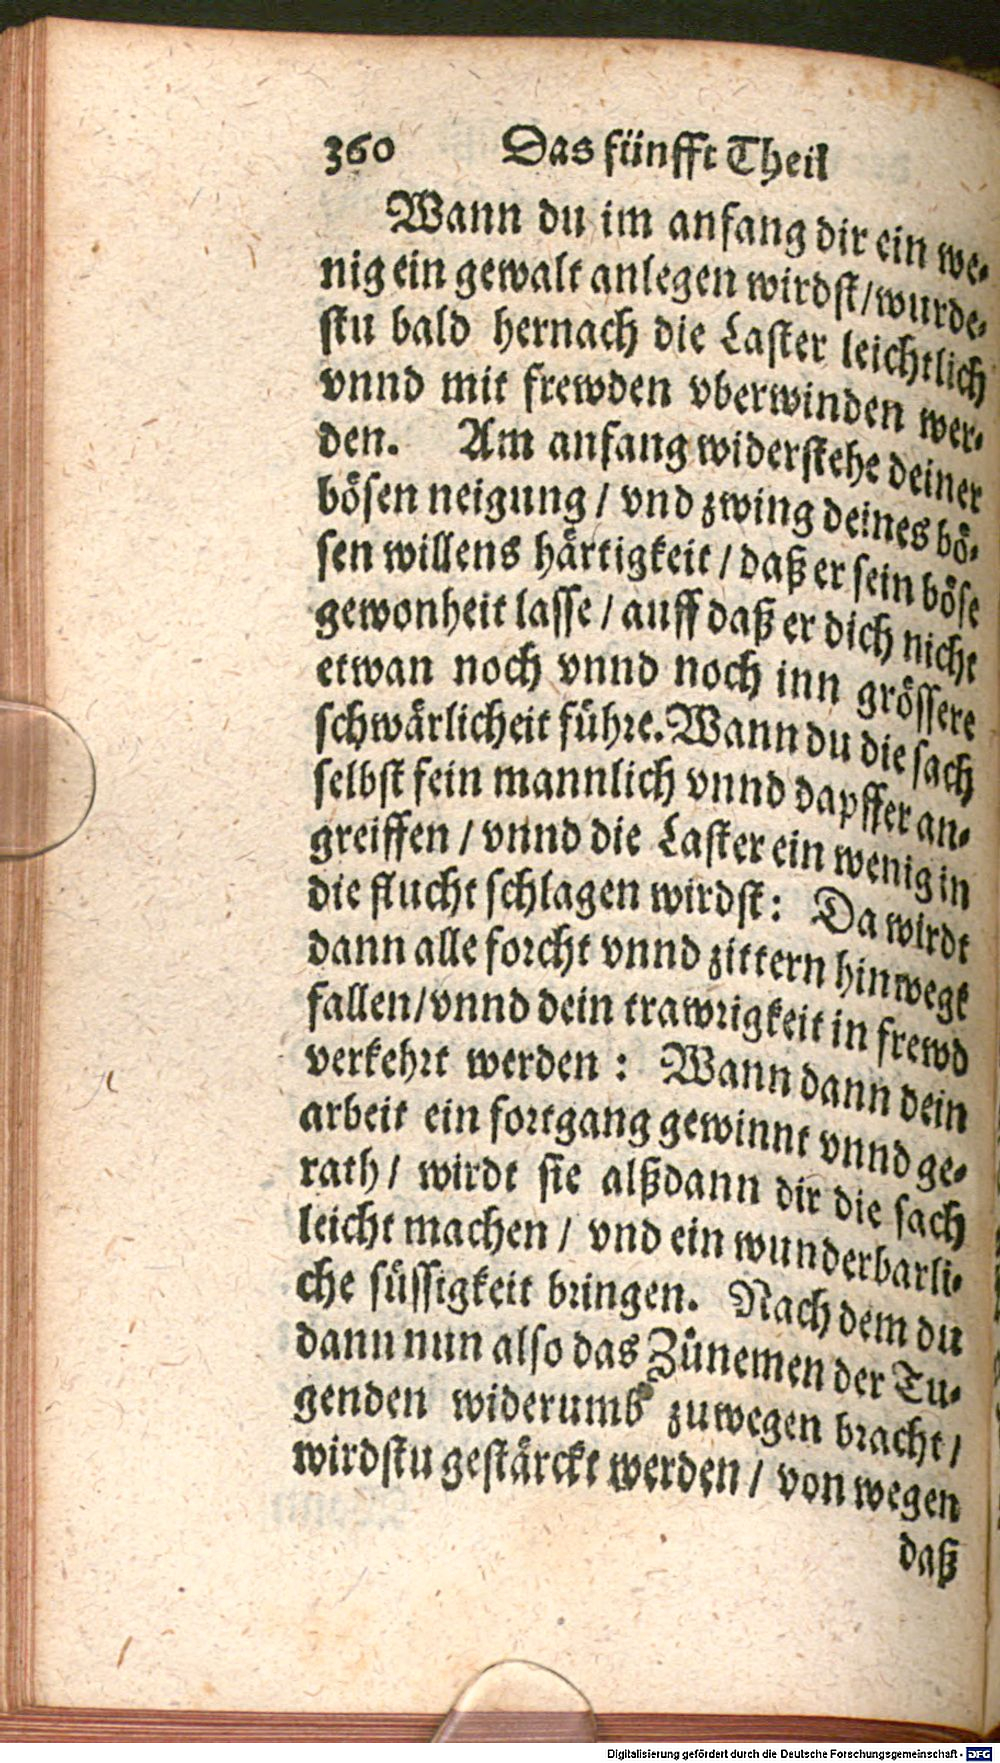 360 Das fünfft Theil
Wann du im anfang dir ein we-
nig ein gewalt anlegen wirdst/wurde-
stu bald hernach die Laster leichtlich
vnnd mit frewden vberwinden wer-
den. Am anfang widerstehe deiner
bösen neigung / vnd zwing deines bö-
sen willens härtigkeit / daß er sein böse
gewonheit lasse / auff daß er dich nicht
etwan noch vnnd noch inn grössere
schwärlicheit führe. Wann du die sach
selbst fein mannlich vnnd dapffer an-
greiffen / vnnd die Laster ein wenig in
die flucht schlagen wirdst: Da wirdt
dann alle forcht vnnd zittern hinwegk
fallen/vnnd dein trawrigkeit in frewd
verkehrt werden : Wann dann dein
arbeit ein fortgang gewinnt vnnd ge-
rath/ wirdt sie alßdann dir die sach
leicht machen / vnd ein wunderbarli-
che süssigkeit bringen. Nach dem du
dann nun also das Zůnemen der Tu-
genden widerumb zuwegen bracht /
wirdstu gestärckt werden / von wegen
daß
Digitalisierung gefördert durch die Deutsche Forschungsgemeinschaft - DFG